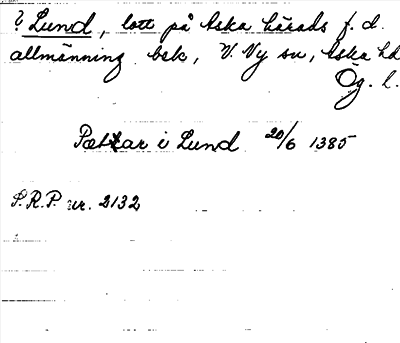 ? Lund, lott på Aska härads f.d.
allmänning bsk, V. Vy sn, Aska hd
Ög. l.
Pættar i Lund 20/6 1385
S.R.P. nr. 2132